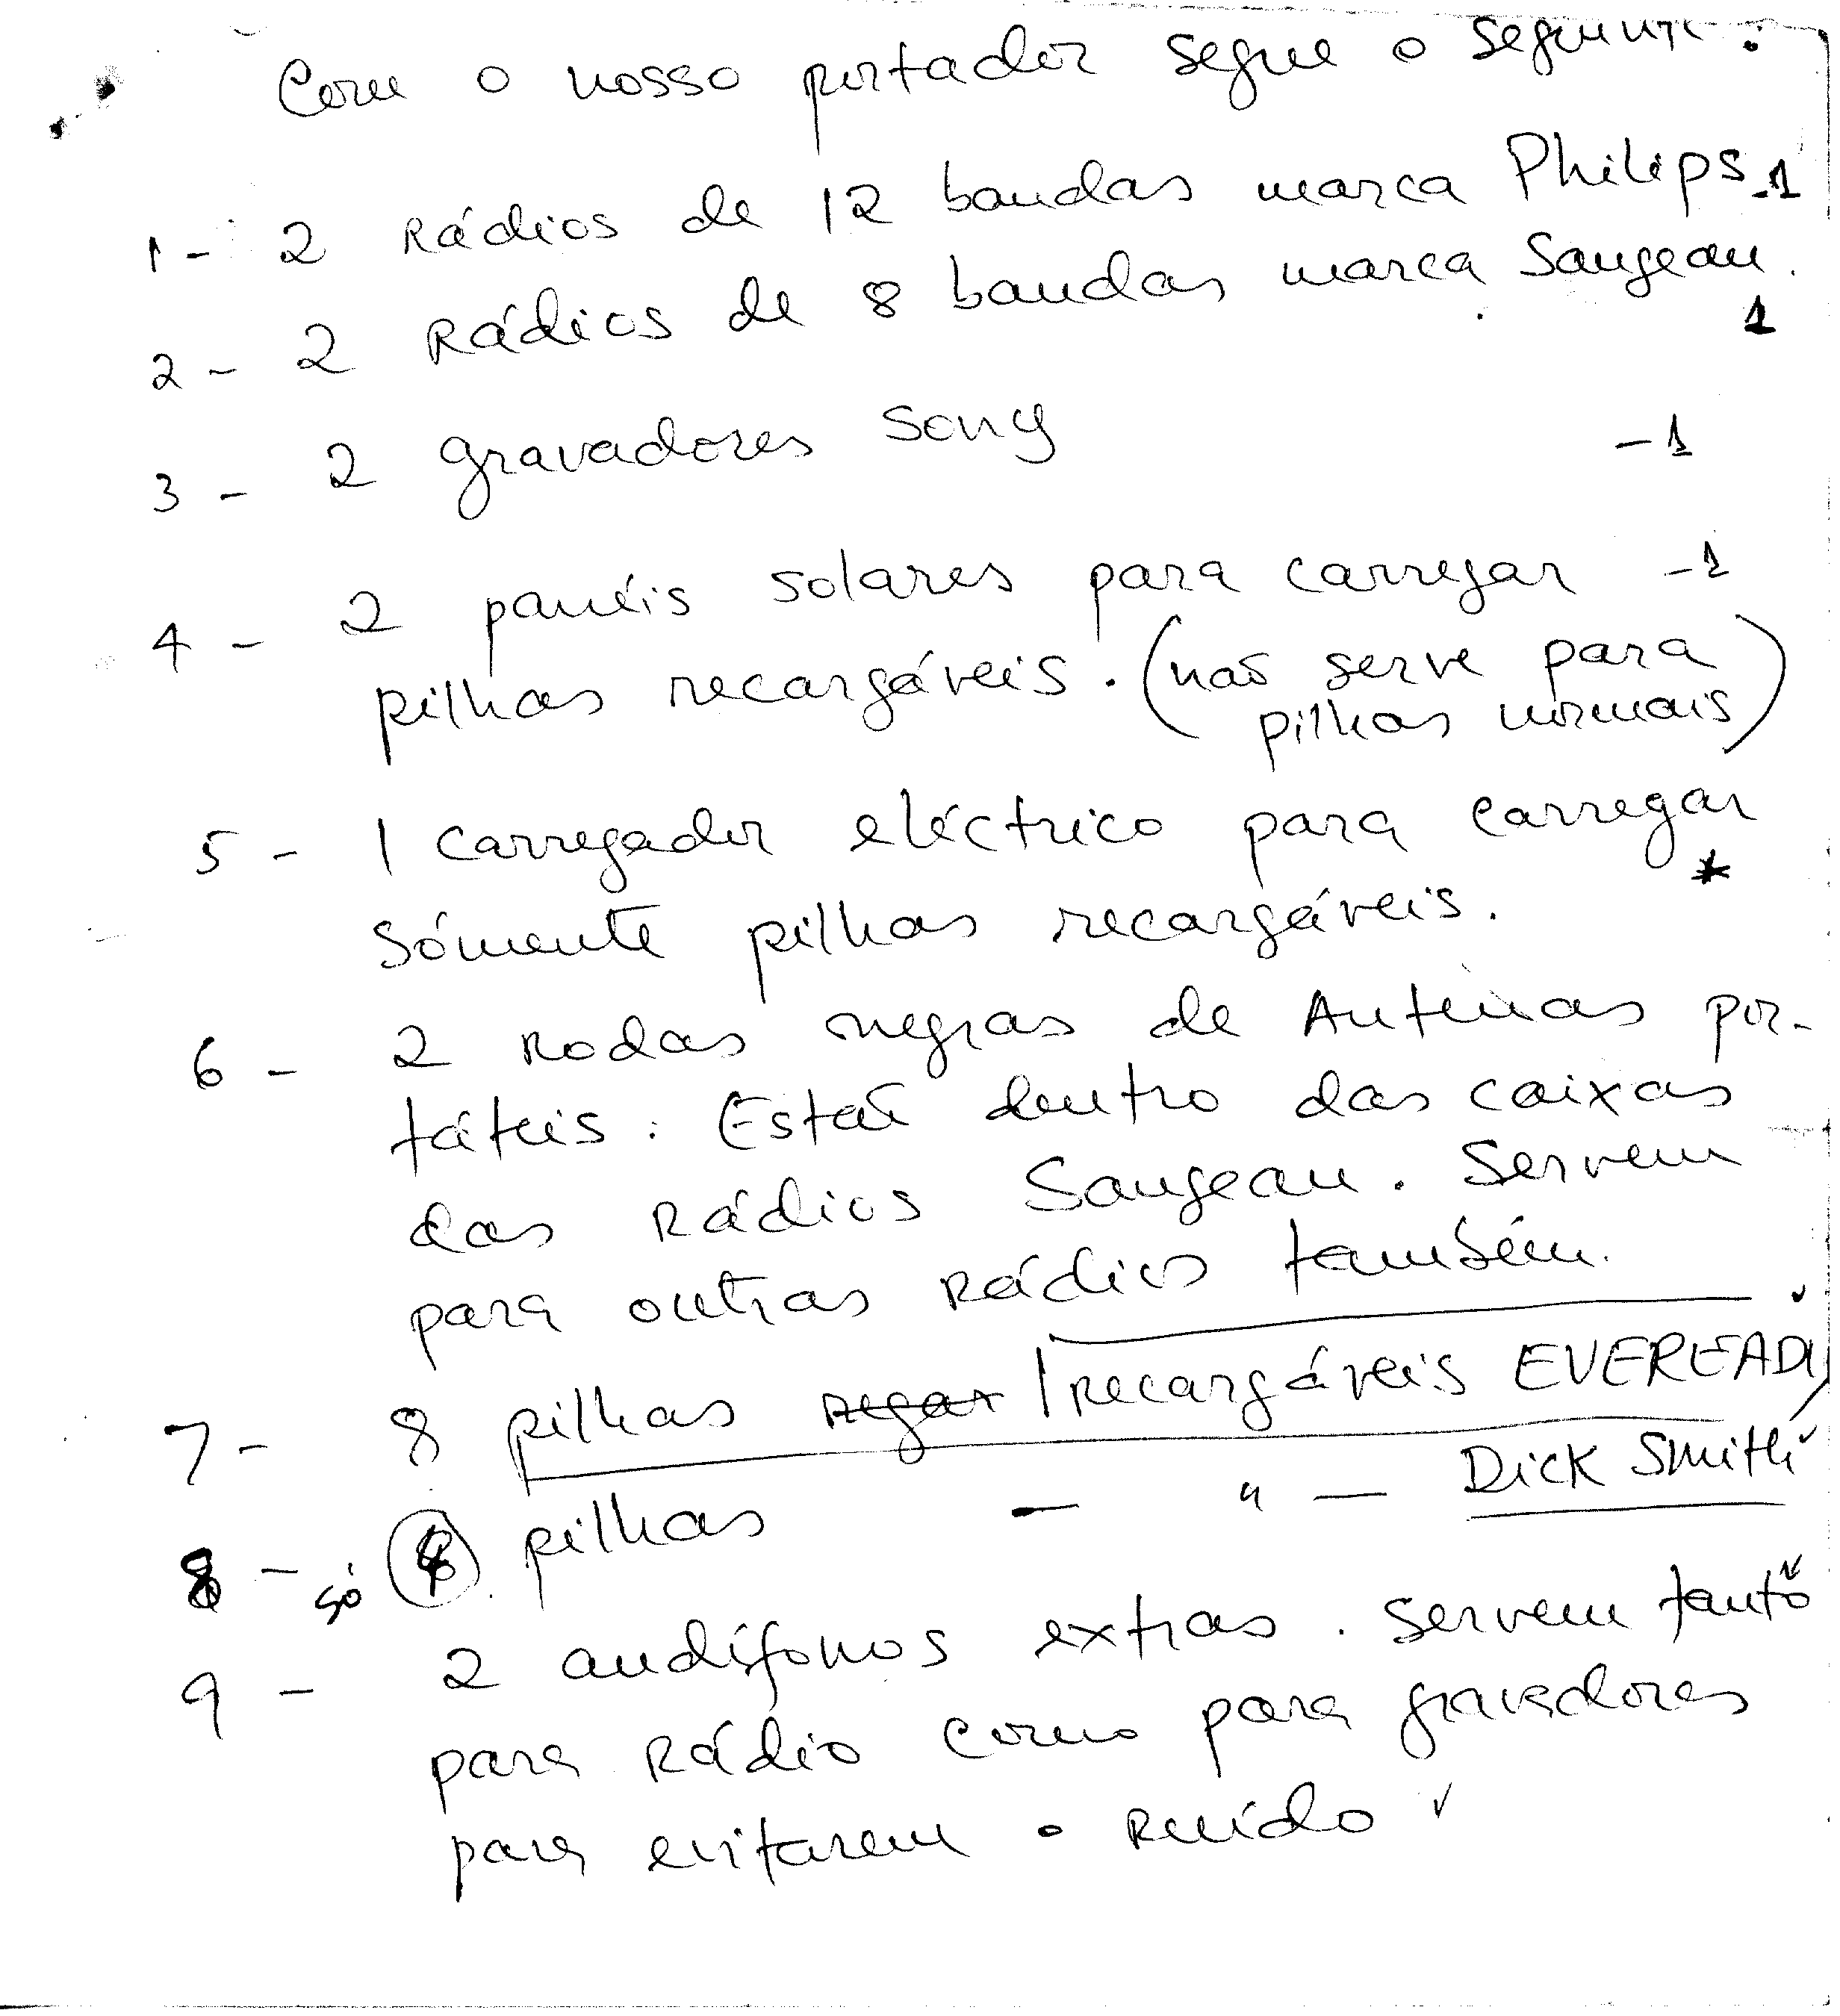 Com o nosso portador segue o seguinte:
1 - 2 Rádios de 12 bandas marca Philips -1
2 - 2 Rádios de 8 bandas marca Sangean.
1
3 - 2 gravadores Sony -1
4 - 2 panéis solares para carregar -1
pilhas recargáveis. (não serve para
pilhas normais)
5 - 1 carregador eléctrico para carregar
*
Sómente pilhas recargáveis.
6 - 2 Rodas negras de Antenas por-
táteis. Estão dentro das caixas
das Rádios Sangean. Servem
para outras Rádios também.
7 - 8 pilhas regar recargáveis EVEREADY
8 - só 4 pilhas - " - Dick Smith
9 - 2 audífonos extras. Servem tanto
para Rádio como para gravadores
para evitarem o Ruído